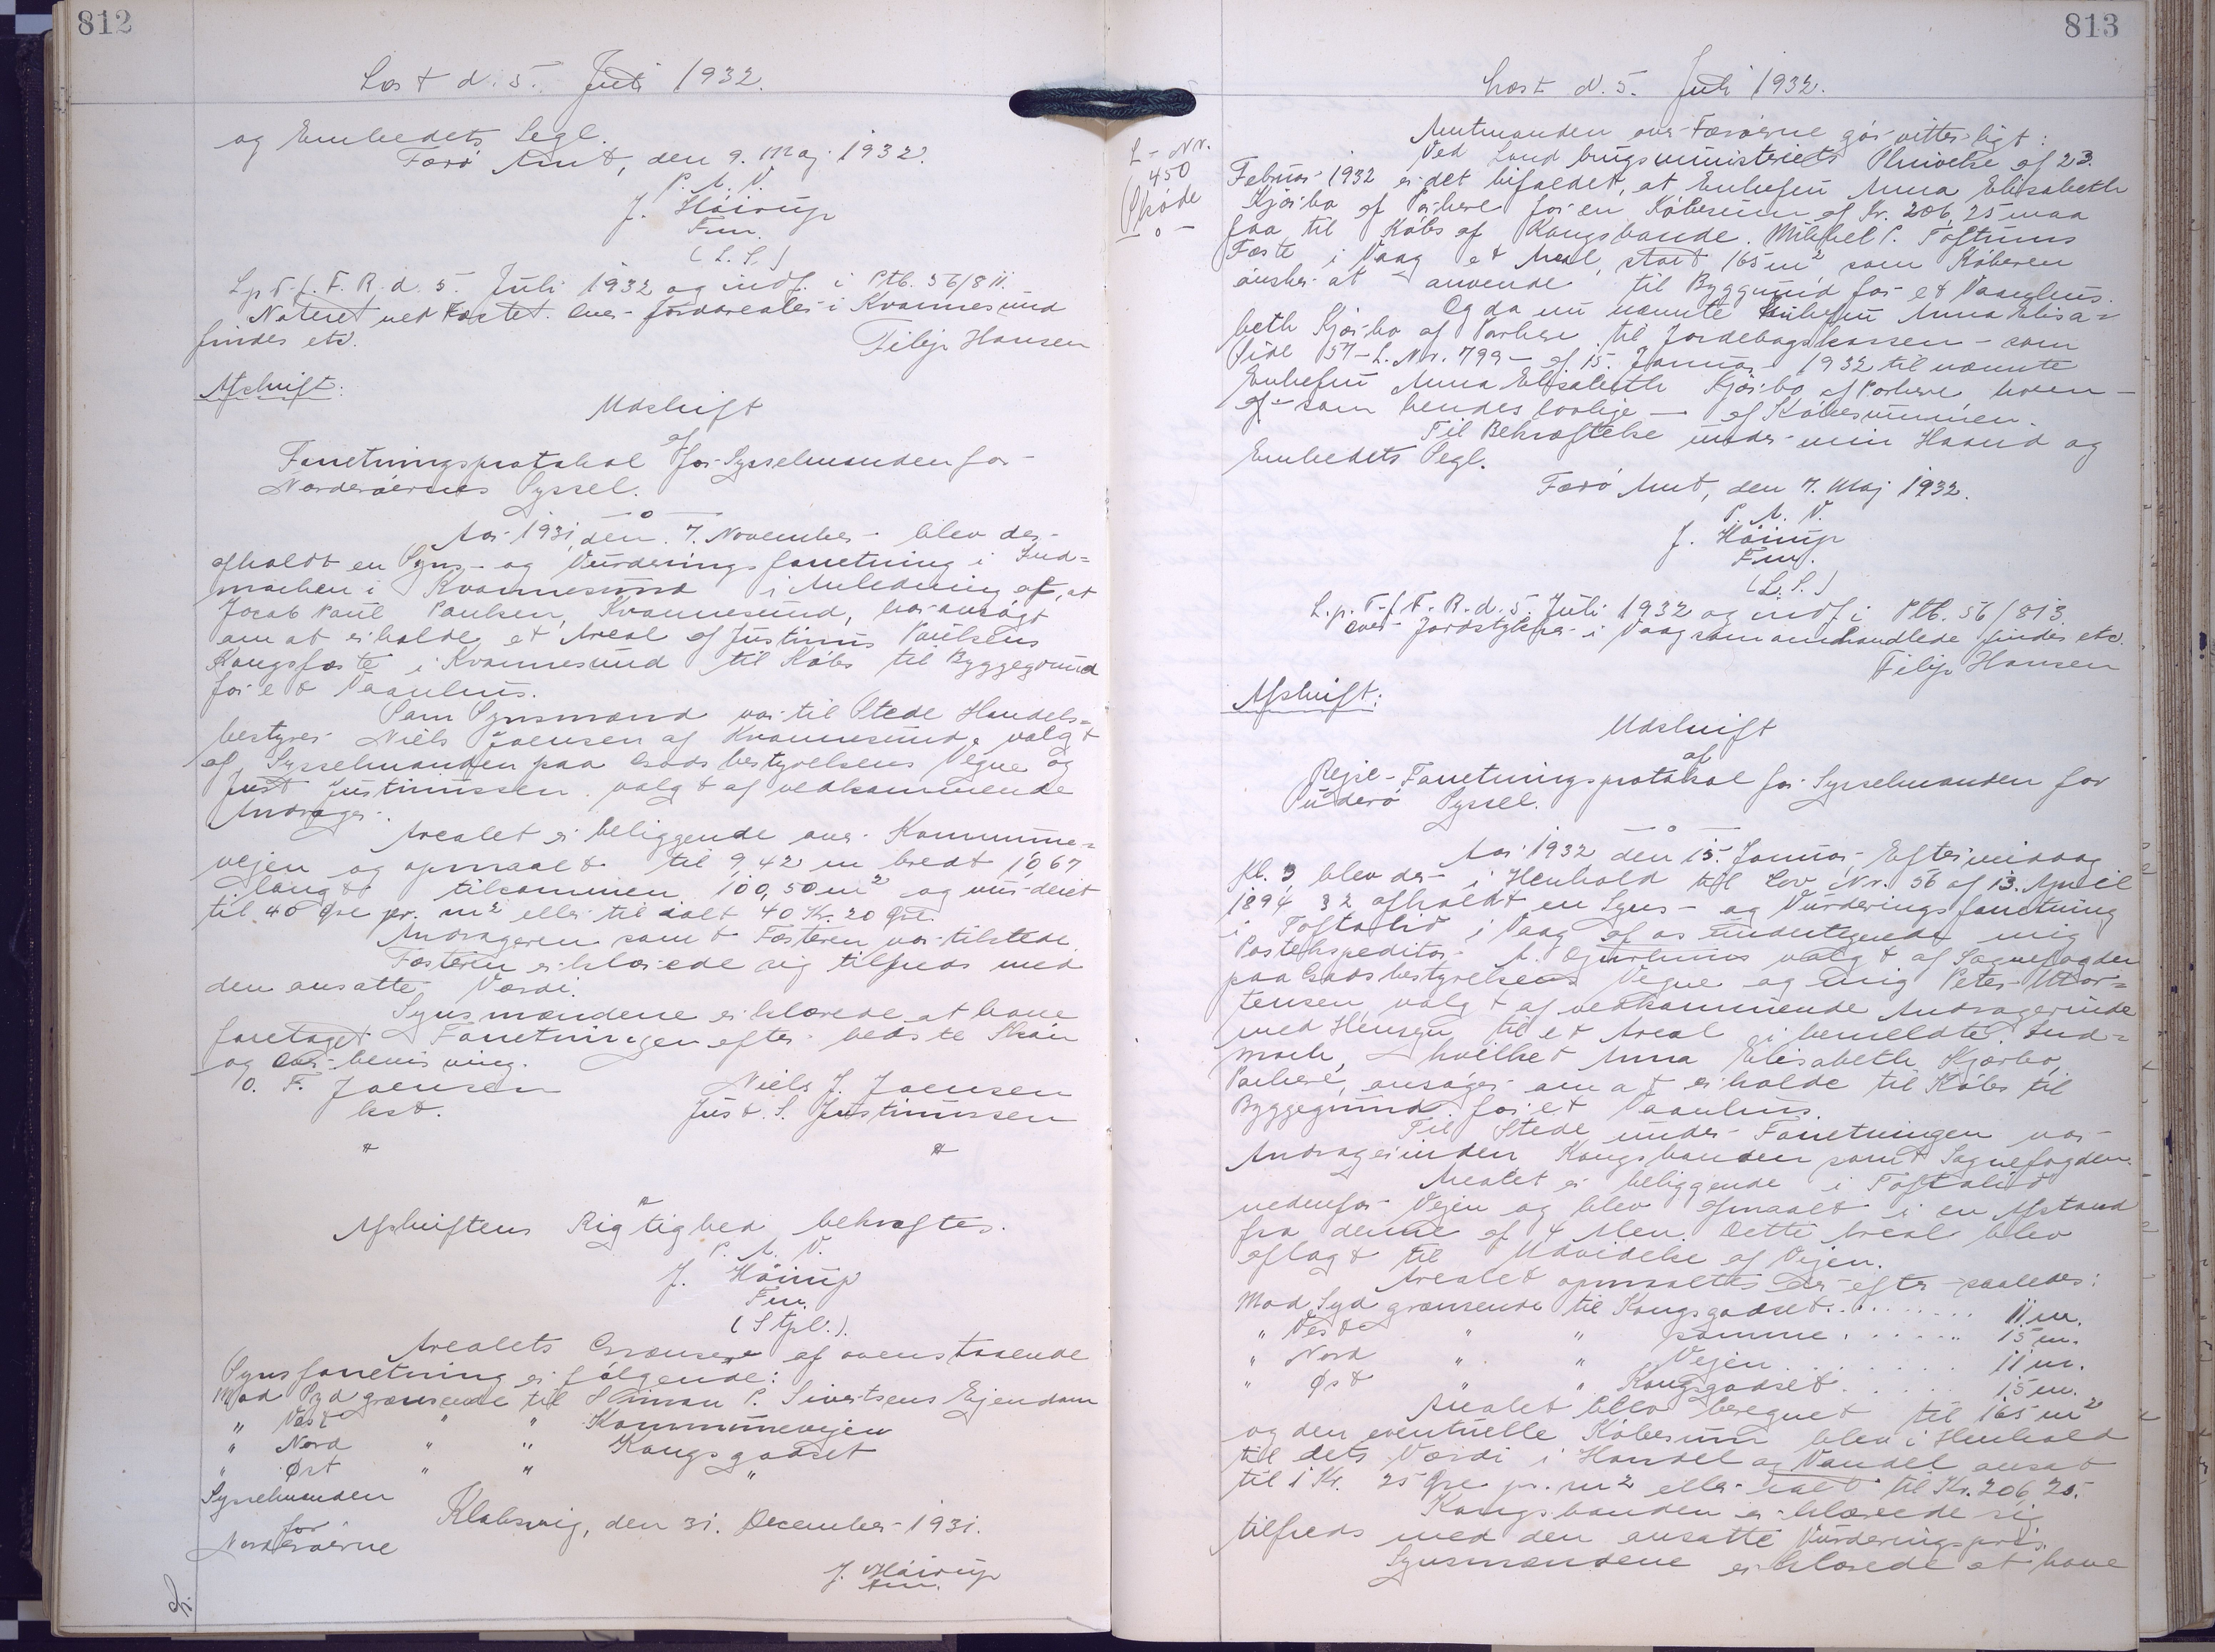 812
Læst d. 5. Juli 1932.
og Embedets Segl.
Færø Amt, den 9. Maj 1932.
P. A. V.
J. Høirup
Fm.
(L. S.)
L. p. T. f. F. R. d. 5. Juli 1932 og indf. i Ptb. 56/811.
Noteret ved Fæstet over Jordarealer i Kvannesund
findes etc. Filip Hansen
Afskrift:
Udskrift
af
Forretningsprotokol for Sysselmanden for
Norderøernes Syssel.
— o —
Aar 1931, den 7. November blev der
afholdt en Syns- og Vurderingsforretning i Ind=
marken i Kvannesund i Anledning af, at
Jacob Paul Poulsen, Kvannesund, har ansøgt
om at erholde et Areal af Justinus Poulsens
Kongsfæste i Kvannesund til Købs til Byggegrund
for et Vaanhus.
Som Synsmænd var til Stede Handels=
bestyrer Niels Joensen af Kvannesund, valgt
af Sysselmanden paa Godsbestyrelsens Vegne og
Just Justinussen valgt af vedkommende
Andrager.
Arealet er beliggende over Kommune=
vejen og opmaalt til 9,42 m bredt 10,67
langt tilsammen 100,50 m² og vurderet
til 40 Øre pr. m² eller til ialt 40 Kr. 20 Øre.
Andrageren samt Fæsteren var tilstede.
Fæsteren erklærede sig tilfreds med
den ansatte Værdi.
Synsmændene erklærede at have
foretaget Forretningen efter bedste Skøn
og Overbevisning.
O. F. Joensen Niels J. Joensen
kst. Just. S. Justinussen
" "
"
Afskriftens Rigtighed bekræftes.
P. A. V.
J. Høirup
Fm.
(Stpl.).
Arealets Grænser af ovenstaaende
Synsforretning er følgende:
Mod Syd grænsende til Simon P. Sivertsens Ejendom
" Vest " " Kommunevejen
" Nord " " Kongsgodset
" Øst " " "
Sysselmanden
for
Norderøerne
Klaksvig, den 31. December 1931.
J. Høirup
fm.
813
Læst d. 5. Juli 1932.
L-Nr.
450
Skøde
— o —
Amtmanden over Færøerne gør vitterligt:
Ved Landbrugsministeriets Skrivelse af 23.
Februar 1932 er det bifaldet, at Enkefru Anna Elisabeth
Kjærbo af Porkere for en Købesum af Kr. 206,25 maa
faa til Købs af Kongsbonde Mikkel P. Toftums
Fæste i Vaag et Areal, stort 165 m² som Køberen
ønsker at anvende til Byggrund for et Vaanhus.
Og da nu nævnte Enkefru Anna Elisa=
beth Kjærbo af Porkere til Jordebogskassen - som
Side 57 - L. Nr. 799 - af 15. Januar 1932 til nævnte
Enkefru Anna Elisabeth Kjærbo af Porkere hven-
af som hendes lovlige — af Købesummen.
Til Bekræftelse under min Haand og
Embedets Segl.
Færø Amt, den 7. Maj 1932.
P. A. V.
J. Høirup
Fm.
(L. S.)
L. p. T. f. F. R. d. 5. Juli 1932 og indf. i Ptb. 56/813.
over Jordstykker i Vaag som omhandlede findes etc.
Filip Hansen
Afskrift:
Udskrift
af
Rejse-Forretningsprotokol for Sysselmanden for
Suderø Syssel.
— o —
Aar 1932 den 15. Januar, Eftermiddag
Kl. 3 blev der i Henhold til Lov Nr. 56 af 13. April
1894 § 2 afholdt en Syns- og Vurderingsforretning
i Toftalid i Vaag af os undertegnede mig
Postekspeditør A. Djurhuus valgt af Sognefogden
paa Godsbestyrelsens Vegne og mig Peter Mor=
tensen valgt af vedkommende Andragerinde
med Hensyn til et Areal i bemeldte Ind=
mark, hvilket Anna Elisabeth Kjærbo,
Porkere, ansøger om at erholde til Købs til
Byggegrund for et Vaanhus.
Til Stede under Forretningen var
Andragerinden Kongsbonden samt Sognefogden.
Arealet er beliggende i Toftalid
nedenfor Vejen og blev afmaalt i en Afstand
fra denne af 4 Alen. Dette Areal blev
aflagt til Udvidelse af Vejen.
Arealet opmaaltes derefter saaledes:
Mod Syd grænsende til Kongsgodset. . . . . . . 11 m.
" Vest " " samme . . . . . . 15 m.
" Nord " " Vejen . . . . . . . 11 m.
" Øst " " Kongsgodset . . . . . 15 m.
Arealet blev beregnet til 165 m²
og den eventuelle Købesum blev i Henhold
til dets Værdi i Handel og Vandel ansat
til 1 Kr. 25 Øre pr. m² eller ialt til Kr. 206,25.
Kongsbonden erklærede sig
tilfreds med den ansatte Vurderingspris.
Synsmændene erklærede at have